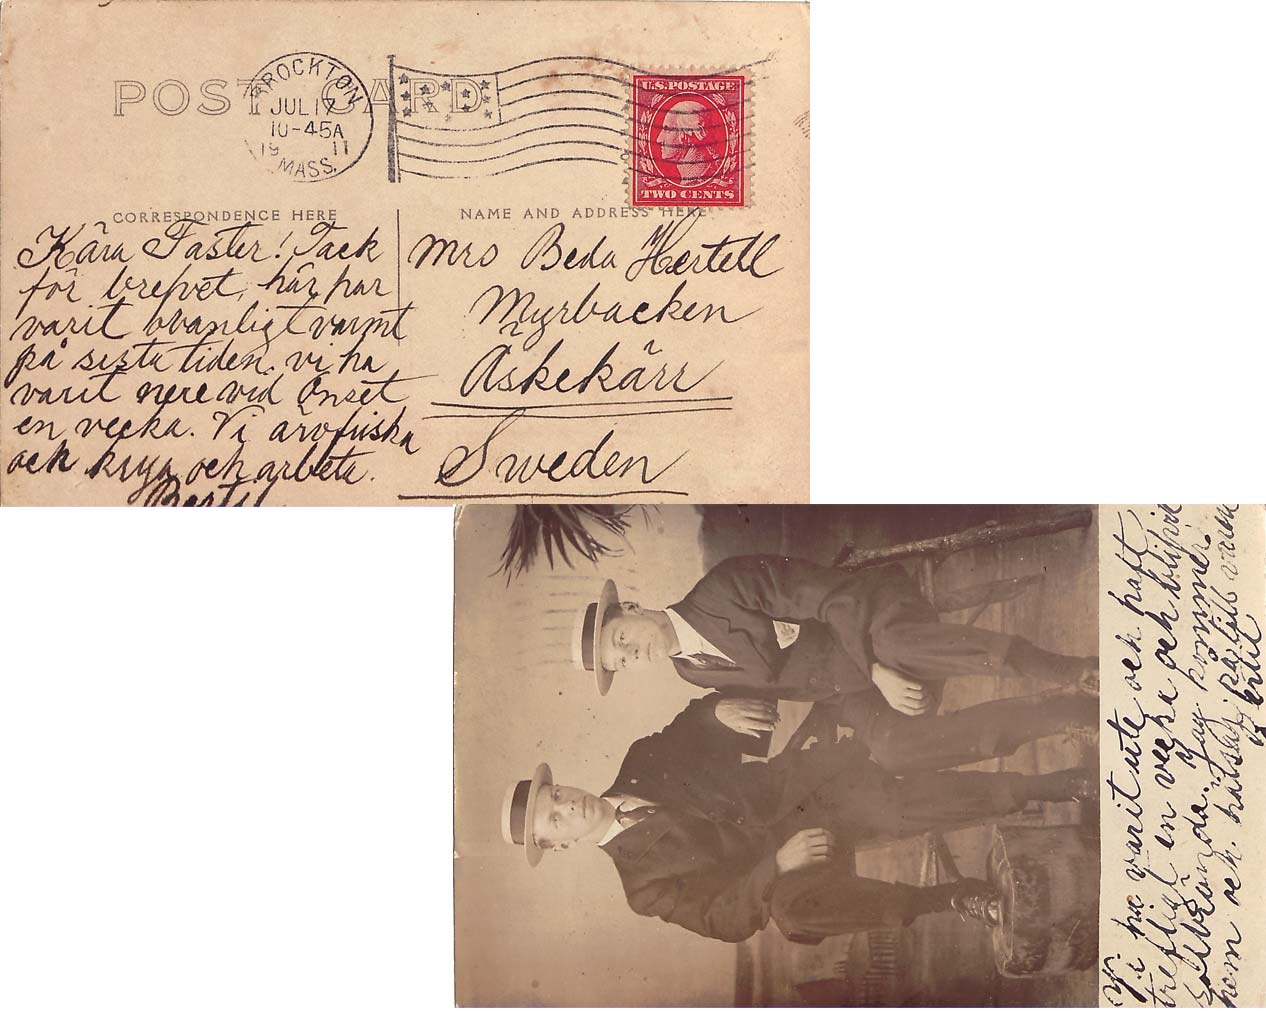 POST CARD
BROCKTON
JUL 17
10-45A
19 11
MASS.
U.S. POSTAGE
TWO CENTS
CORRESPONDENCE HERE
NAME AND ADDRESS HERE
Kära Faster! Tack
för brefvet, här har
varit ovanligt varmt
på sista tiden. vi ha
varit nere vid Onset
en vecka. Vi äro friska
och krya och arbeta.
Bertil
Mrs Beda Hertell
Myrbacken
Äskekärr
Sweden
Vi ha varit ute och haft
trefligt en vecka och blifvit
solbrända. Jag kommer
hem och hälsar på